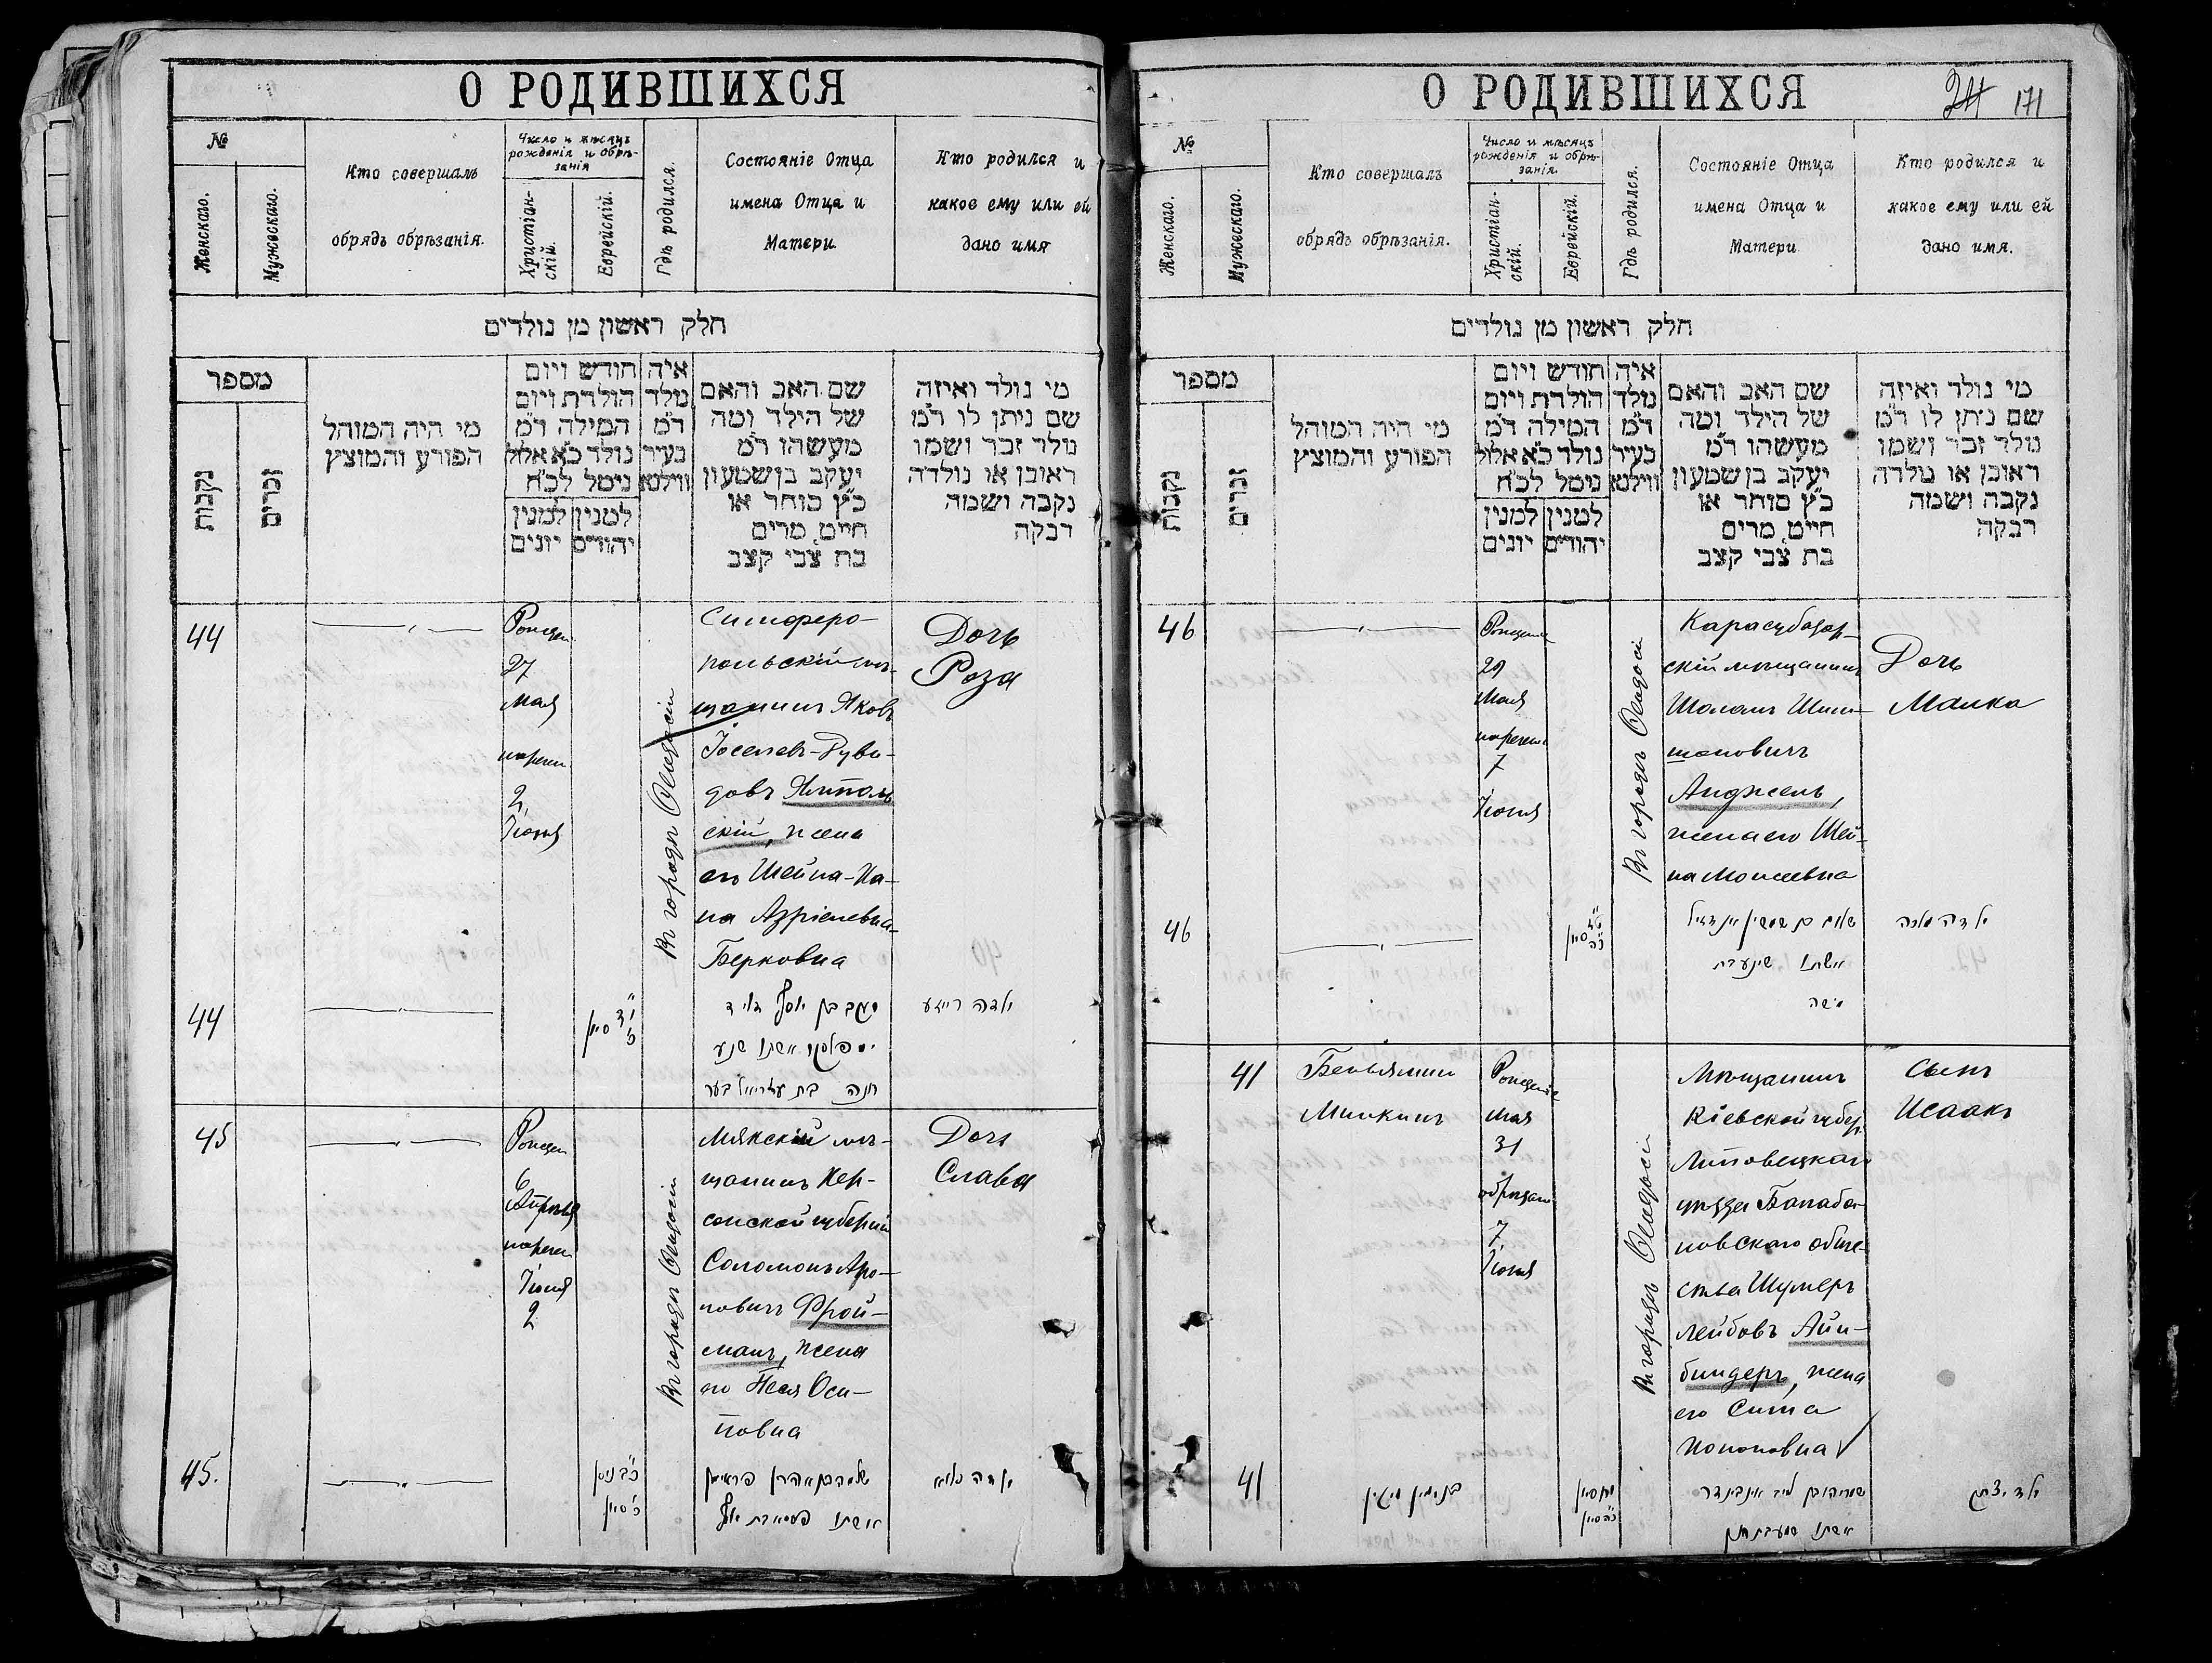 О РОДИВШИХСЯ
№
Женскаго.
Мужескаго.
Кто совершалъ
обрядъ обрѣзанія.
Число и мѣсяцъ
рожденія и обрѣ-
занія
Христіан-
скій.
Еврейскій.
Гдѣ родился.
Состояніе Отца
имена Отца и
Матери.
Кто родился и
какое ему или ей
дано имя
חלק ראשון מן נולדים
מספר
נקבות
זכרים
מי היה המוהל
הפורע והמוצץ
חודש ויום
הולדת ויום
המילה ד״מ
נולד כ״א אלול
נימל לכ״ח
למנין יהודים
למנין יונים
איה
נולד
ד״מ
בעיר
ווילנא
שם האב והאם
של הילד ומה
מעשהו ד״מ
יעקב בן שמעון
כ״ץ סוחר או
חייט מרים
בת צבי קצב
מי נולד ואיזה
שם ניתן לו ד״מ
נולד זכר ושמו
ראובן או נולדה
נקבה ושמה
רבקה
44
27
мая
2
Іюня
Въ городѣ Ѳеодосіи
Симферо-
польскій мѣ-
щанинъ Яковъ
Іоселевъ-Дуви-
довъ Ямполь
скій, жена
его Шейна-Ха-
на Азріелевна-
Берковна
Дочь
Роза
44
ילדה רייזע
45
6
нарече
Іюня
2
Въ городѣ Ѳеодосіи
мѣ-
щанинъ Хер-
сонской губерніи
Соломонъ Аро-
новичъ Фрой-
манъ, жена
его Песя Оси-
повна
Дочь
Слава
45.
שלמה בן אהרן פראימן
О РОДИВШИХСЯ
171
№
Женскаго.
Мужескаго.
Кто совершалъ
обрядъ обрѣзанія.
Число и мѣсяцъ
рожденія и обрѣ-
занія.
Христіан-
скій.
Еврейскій.
Гдѣ родился.
Состояніе Отца
имена Отца и
Матери
Кто родился и
какое ему или ей
дано имя.
חלק ראשון מן נולדים
מספר
נקבות
זכרים
מי היה המוהל
הפורע והמוצץ
חודש ויום
הולדת ויום
המילה ד״מ
נולד כ״א אלול
נימל לכ״ח
למנין יהודים
למנין יונים
איה
נולד
ד״מ
בעיר
ווילנא
שם האב והאם
של הילד ומה
מעשהו ד״מ
יעקב בן שמעון
כ״ץ סוחר או
חייט מרים
בת צבי קצב
מי נולד ואיזה
שם ניתן לו ד״מ
נולד זכר ושמו
ראובן או נולדה
נקבה ושמה
רבקה
46
29
Мая
7
Іюня
Въ городѣ Ѳеодосіи
Карасубазар-
скій мѣщанинъ
Шоломъ Шим-
шоновичъ
Анджель,
жена его Шей-
на Моисеевна
Дочь
Малка
46
משה
ילדה מלכה
41
Беньяминъ
Минкинъ
Мая
31
7
Іюня
Въ городѣ Ѳеодосіи
Мѣщанинъ
Кіевской губер.
Липовецкаго
уѣзда Балаба-
новскаго обще-
ства Шумеръ
Лейбовъ Айн-
биндеръ, жена
его Сима
Нононовна
Сынъ
Исаакъ
41
ילד יצחק